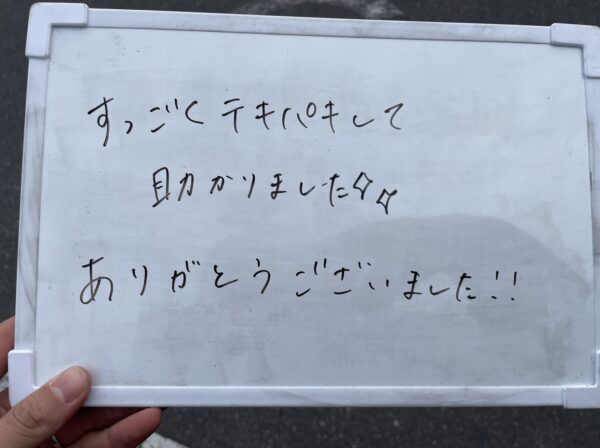 すっごくテキパキして
助かりました✧✧
ありがとうございました!!